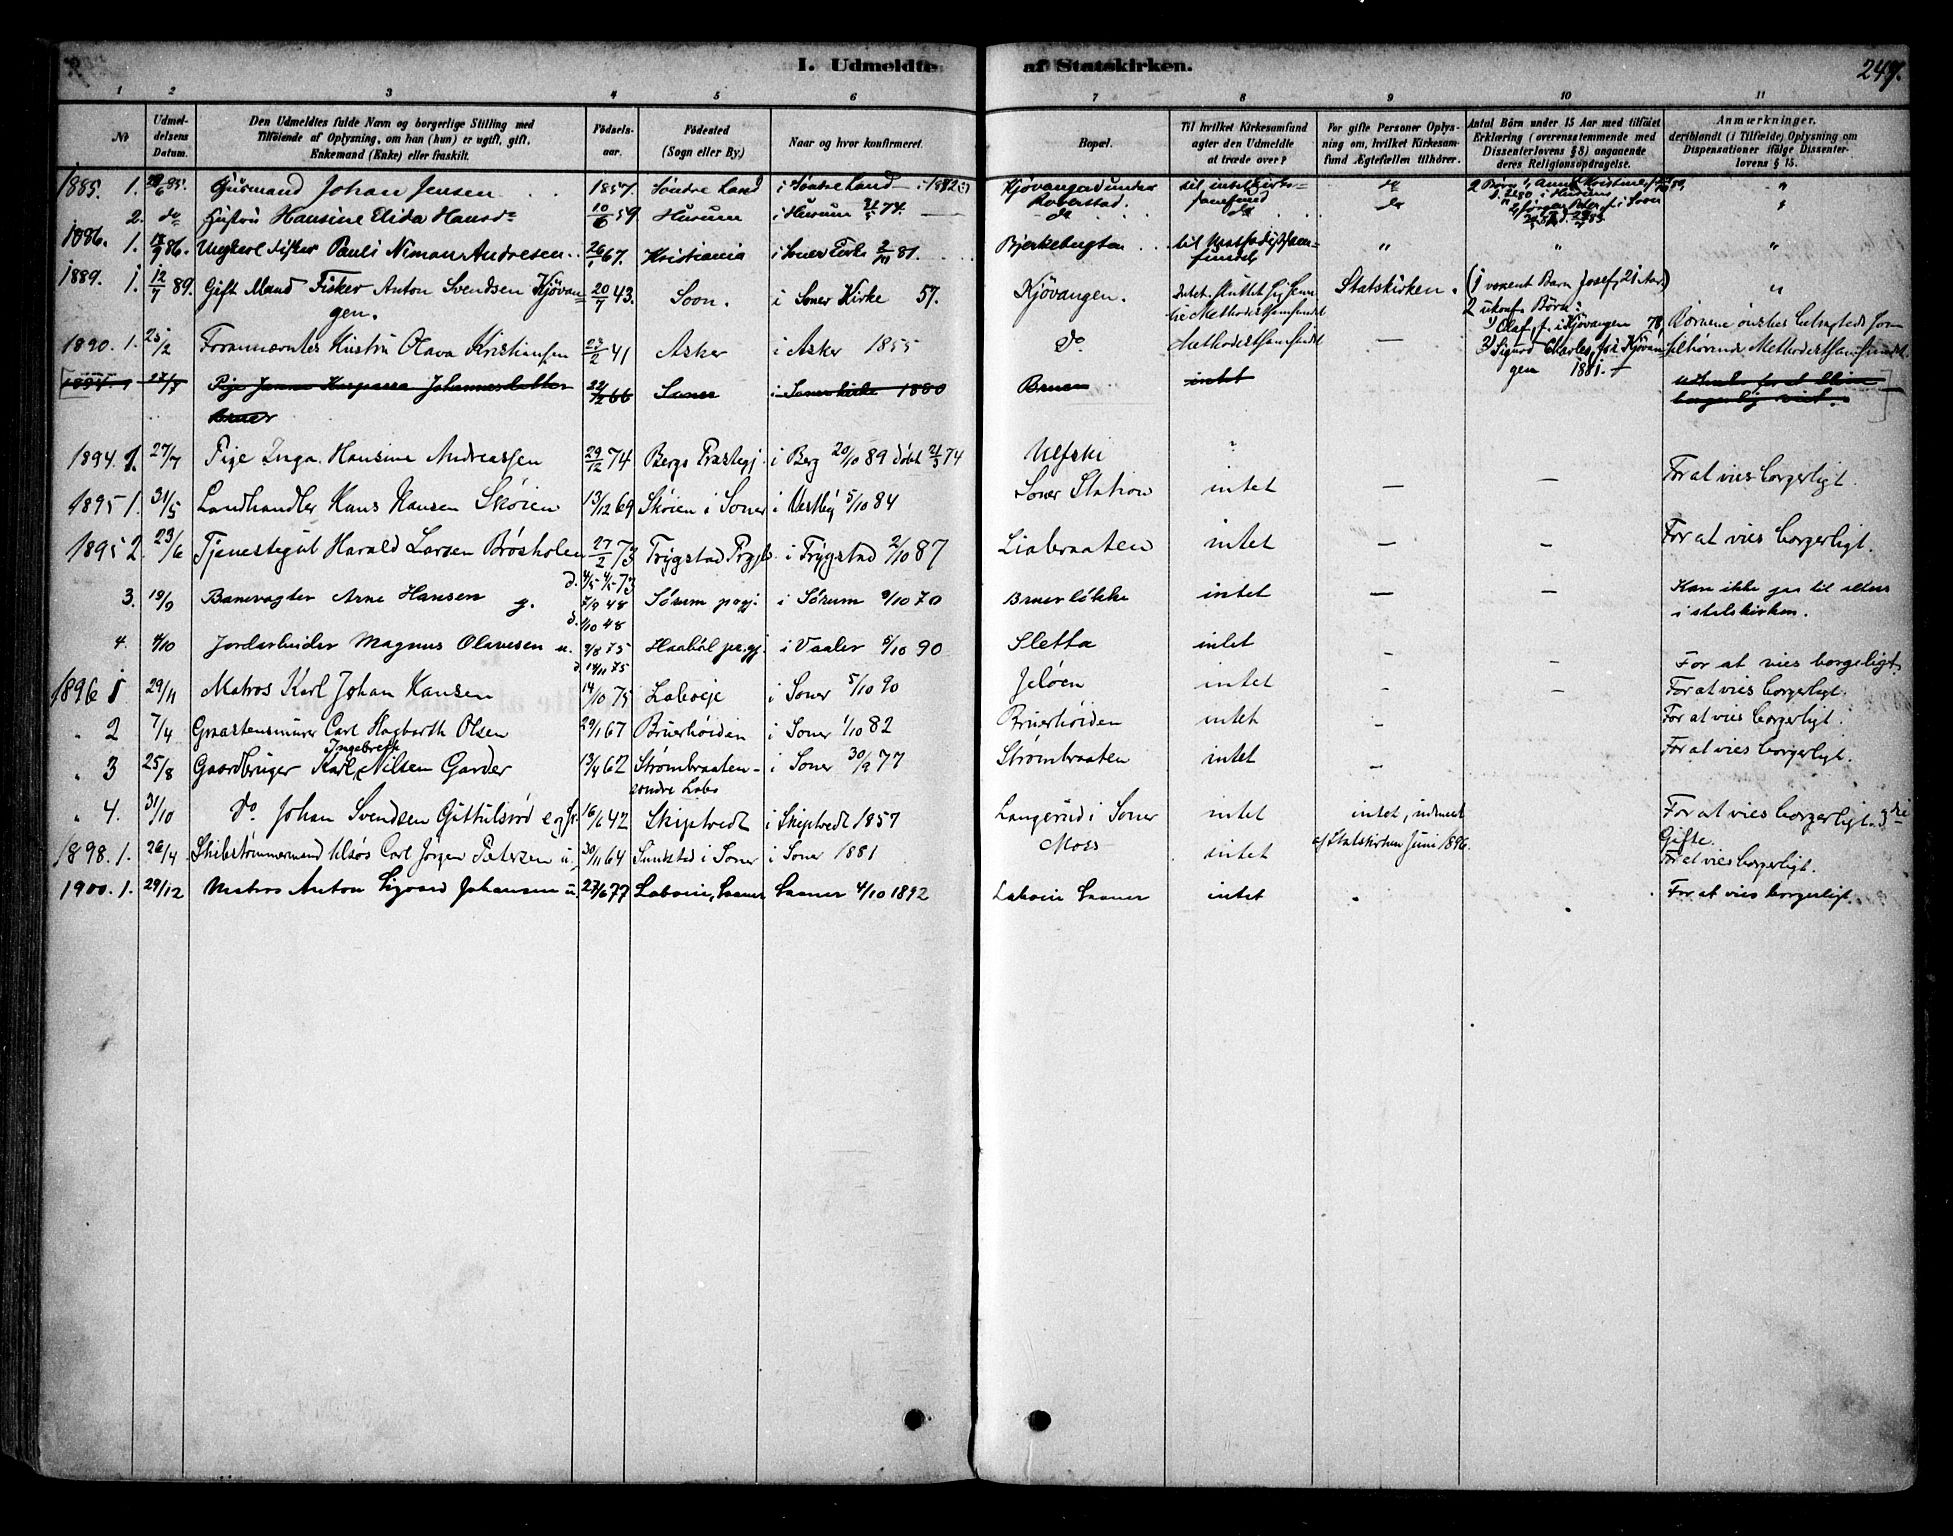 I. Udmeldte af Statskirken. 247.
1 2 3 4 5 6 7 8 9 10 11
No
Udmeldelsens Datum.
Den Udmeldtes fulde Navn og borgerlige Stilling med
Tilføiende af Oplysning, om han (hun) er ugift, gift,
Enkemand (Enke) eller fraskilt.
Fødselsaar.
Fødested
(Sogn eller By.)
Naar og hvor konfirmeret.
Bopæl.
Til hvilket Kirkesamfund
agter den Udmeldte
at træde over?
For gifte Personer Oplys-
ning om, hvilket Kirkesam-
fund Ægtefællen tilhører.
Antal Børn under 15 Aar med tilføiet
Erklæring (overensstemmende med
Dissenterlovens § 8) angaaende
deres Religionsopdragelse.
Anmærkninger,
deriblandt (i Tilfælde) Oplysning om
Dispensationer ifølge Dissenter-
lovens § 15.
1885. 1. Gusmand Johan Jensen 1857. Søndre Land i Søndre Land
2. do Hustru Hansine Elida Hansd 10/6 59. Hurum i Hurum 74. do
1886. 1. 86. Ungkarl Fisker Pauli Niman Andresen 26/1 67. Kristiania i Soner Kirke 81. Bjerkebugten " " "
1889. 1. 12/7 89. Gift Mand Fisker Anton Svendsen Kjøvan- 20/7 43. Soon. i Soner Kirke 57. Kjøvangen. Statskirken. (1 voxent Barn Josef, 21 Aar.) "
gen. Methodistsamfundet 2 ukonf. Børn:
1) Olaf, f. i Kjøvangen 78,
1890. 1. 25/2 Forannævntes Hustru Olava Kristiansen 27/2 41 Asker i Asker 1855 Do Methodistsamfundet — 2) Sigurd Charles, f. i Kjøvan- tilhørende Methodistsamfundet
gen 1881.
1894 1 27/7 Pige Johannesdatter 22/2 66 Saner i Soner kirke 1880 Bruer intet
Bruer borgerlig viet.
1894. 1. 27/7 Pige Inga Hansine Andreassen 29/12 74 Bergs Præstegj. i Berg 20/10 89 døbt 21/3 74 Ulfski
1895 1. 31/5 Landhandler Hans Hansen Skøien 13/12 69 Skøien i Soner i Vestby 5/10 84 Soner Station intet — — For at vies borgerligt.
1895 2. 23/6 Tjenestegut Harald Larsen Brøsholen 27/2 73 Trygstad Prgj. i Trygstad 2/10 87 Liabraaten intet — — For at vies borgerligt.
3. 19/9 Banevogter Arne Hansen g. 7/9 48 Sørum prgj. i Sørum 9/10 70 Bruerløkke intet — — Kan ikke gaa til alters
d. 1/10 48 i statskirken.
4. 4/10 Jordarbeider Magnus Olavesen u. 9/8 75 Haabøl prgj. i Vaaler 5/10 90 Sletta intet - - For at vies borgeligt.
d. 14/11 75
1896 1 29/11 Matros Karl Johan Hansen 14/10 75 Labøie i Soner 5/10 90 Jeløen intet - - For at vies borgerligt.
" 2 7/4 Graastensmurer Carl Hagbarth Olsen 29/1 67 Bruerhøiden i Soner 1/10 82 Bruerhøiden intet - For at vies borgerligt.
" 3 25/8 Gaardbruger Karl Ingebreth Nilsen Garder 13/4 62 Strømbraaten - i Soner 30/9 77 Strømbraaten intet - For at vies borgerligt.
søndre Labo
" 4. 31/10 Do Johan Svendsen Guttulsrød 16/6 42 Skiptvedt i Skiptvedt 1857 Langerud i Soner intet intet, udmeldt For at vies borgerligt
af Statskirken Juni 1896. Gifte.
1898. 1. 26/4 Skibstømmermand Carl Jørgen Petersen u. 30/11 64 Sundstad i Soner i Soner 1881 Moss intet For at vies borgerligt.
1900. 1. 29/12 Matros Anton Sigvard Johansen u. 27/6 77 Laboie, Saaner Saaner 4/10 1892 Laboie Saaner intet For at vies borgerligt.